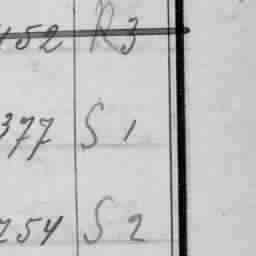 452 R3
377 S 1
254 S 2